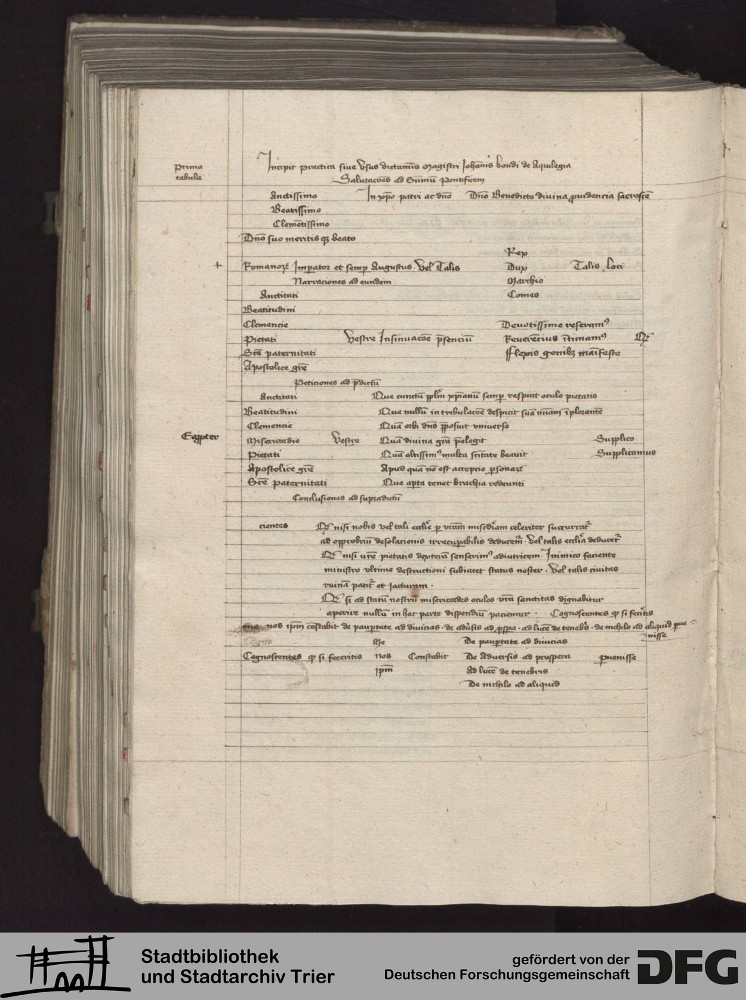 Prima
tabula
Incipit practica siue vsus dictaminis magistri Johannis bondi de Aquilegia
Salutacões ad Summū pontificem
Anctissimo In xp̄o patri ac dn̄o Dn̄o Benedicto diuina prudencia sacrosc̄e
Beatissimo
Clemētissimo
Dn̄o suo meritis qz beato
Rex
+ Romanoꝝ Imperator et semp Augustus vel Talis Dux Talis loci
Narraciones ad eundem Marchio
Anctitati Comes
Beatitudini
Clemencie Deuotissime reseram⁹
Pietati Vestre Insinuacōe p̄senciū Reuerēcius ītimam⁹ Qz
Scē paternitati fflexis genibꝫ manifeste
Apostolice gr̄e
Peticiones ad p̄dictū
Anctitati Que cunctū pp̄lm xp̄ianū semp respicit oculo pietatis
Beatitudini Que nullū in tribulacōe despicit suā īplorantē
Clemencie Quā orbi dn̄s pposuit vniuerso
Misericordie Vestre Quā diuina gr̄a p̄elegit Supplico
Pietati Quā altissim⁹ multa sc̄itate beauit Supplicamus
Apostolice gr̄e Apud quā nō est accepcio psonaꝝ
Scē paternitati Que apta tenet brachia redeunti
Conclusiones ad supradictū
cientes Qz nisi nobis vel tali ecclie p vr̄am mis̄diam celeriter succurrat᷑
ad opprobriū desolacionis irrecupabilis deducem᷑. Vel talis ecclīa deducet᷑
Qz nisi vr̄e pietatis dexterā senserim⁹ adiutricem Inimico faciente
ministro vltime destructioni subiacet status noster. Vel talis ciuitas
ruinā patit᷑ et iacturam.
Qz si ad statū nostrū misericordes oculos vr̄a sanctitas dignabitur
aperire nullū in hac parte dispendiū paciemur. Cognoscentes qp si fec̄itis
nos ip̄m cōstabit de paupertate ad diuicias. de adūsis ad p̄spa. ad lucē de tenebꝫ. de nichilo ad aliquid pue-
nisse
Me De paupertate ad diuicias
Cognoscentes qp si feceritis nos Constabit De Aduersis ad prospera puenisse
ip̄m Ad lucē de tenebris
De nichilo ad aliquid
Stadtbibliothek
und Stadtarchiv Trier
gefördert von der
Deutschen Forschungsgemeinschaft
DFG